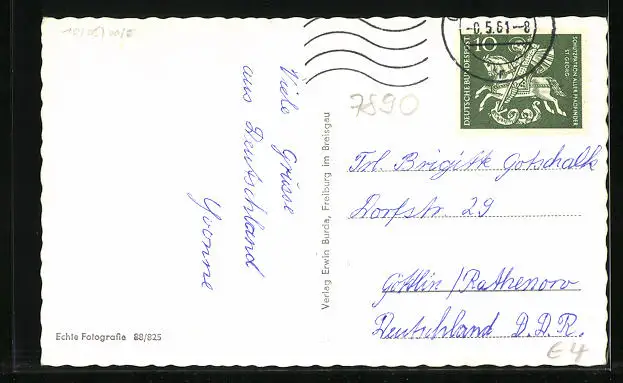 Viele Grüsse
aus Deutschland
Yvonne
Echte Fotografie 88/825
Verlag Erwin Burda, Freiburg im Breisgau
.5.61-8
10
DEUTSCHE BUNDESPOST
SCHUTZPATRON ALLER PFADFINDER
ST. GEORG
7890
Frl. Brigitte Gotschalk
Dorfstr. 29
Göttlin / Rathenow
Deutschland D.D.R.
€4